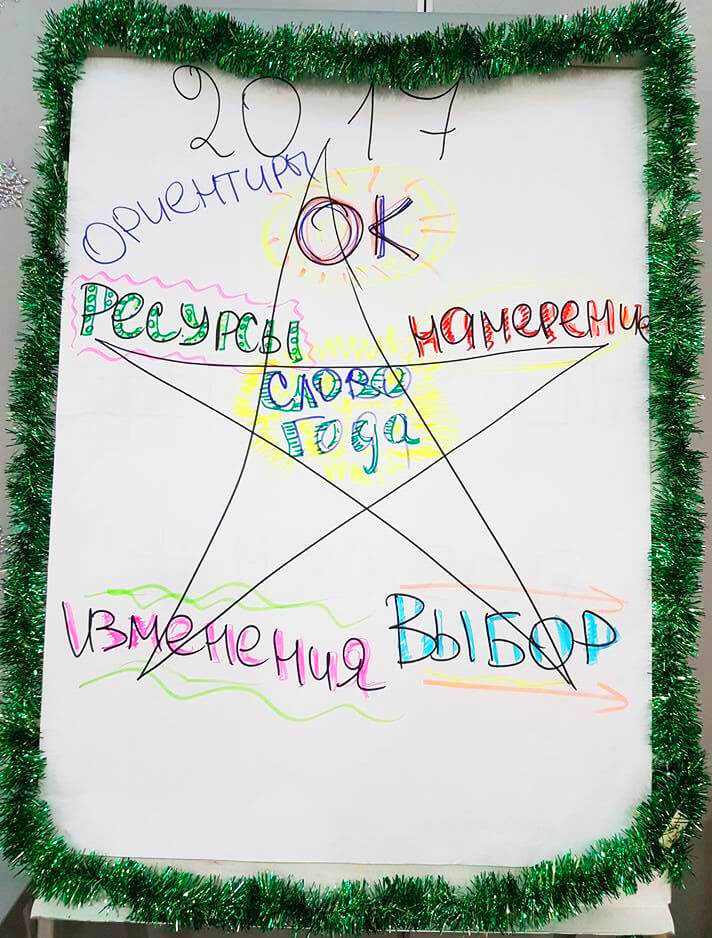 2017
ОРИЕНТИРЫ
ОК
РЕСУРСЫ
НАМЕРЕНИЕ
СЛОВО
ГОДА
ИЗМЕНЕНИЯ
ВЫБОР